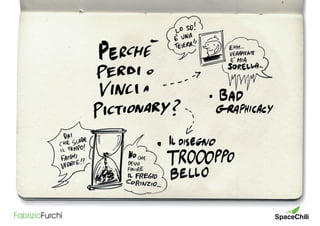 PERCHÉ
PERDI O
VINCI A
PICTIONARY?
LO SO!
È UNA
TEIERA!
EHM...
VERAMENTE
È MIA
SORELLA...
• BAD
GRAPHICACY
DAI
CHE SCADE
IL TEMPO!
FAMMI
VEDERE!!
NO CHE
DEVO
FINIRE
IL FREGIO
CORINZIO...
• IL DISEGNO
TROOOPPO
BELLO
FabrizioFurchi
SpaceChili